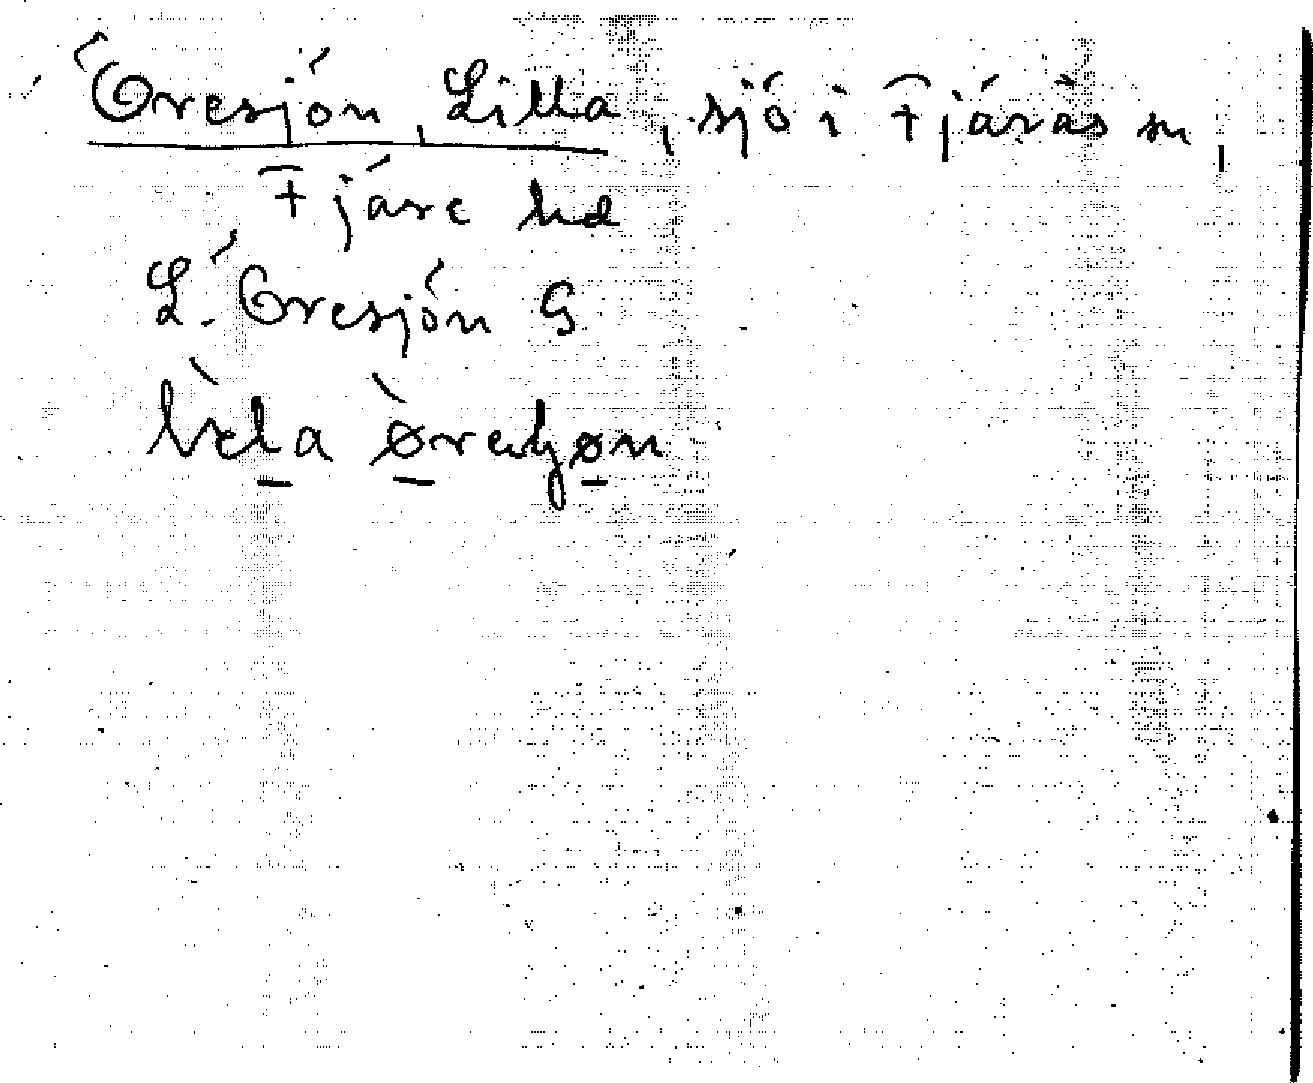 Öresjön, Lilla, sjö i Fjärås sn,
Fjäre hd
L. Öresjön G